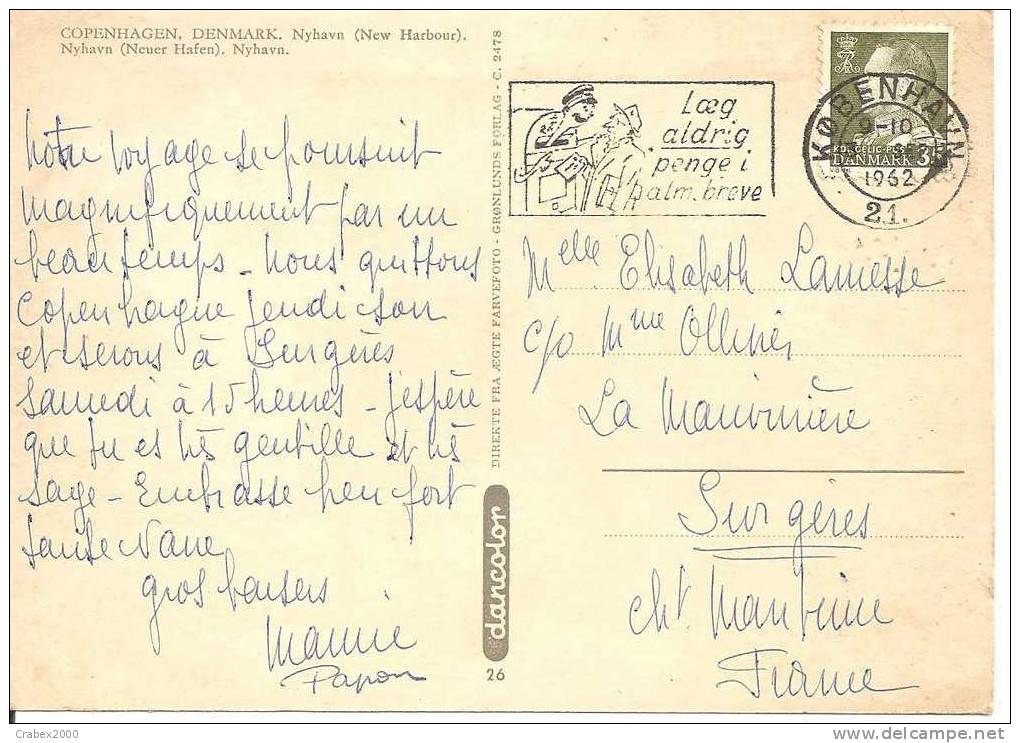 COPENHAGEN, DENMARK. Nyhavn (New Harbour).
Nyhavn (Neuer Hafen). Nyhavn.
Notre voyage se poursuit
magnifiquement par un
beau temps - nous quittons
Copenhague jeudi soir
et serons à Surgères
Samedi à 15 heures - j'espère
que tu es très gentille et très
sage - Embrasse bien fort
tante
gros baisers
Mamie
Papou
DIREKTE FRA ÆGTE FARVEFOTO - GRØNLUNDS FORLAG - C. 2478
dancolor
26
Læg
aldrig
penge i
alm. breve
KØBENHAVN
9-10
1962
21.
DANMARK
Melle Elisabeth Lamesse
c/o Mme Ollivier
La Mauvinière
Surgères
Cht Maritime
France
Crabex2000
delcampe.net